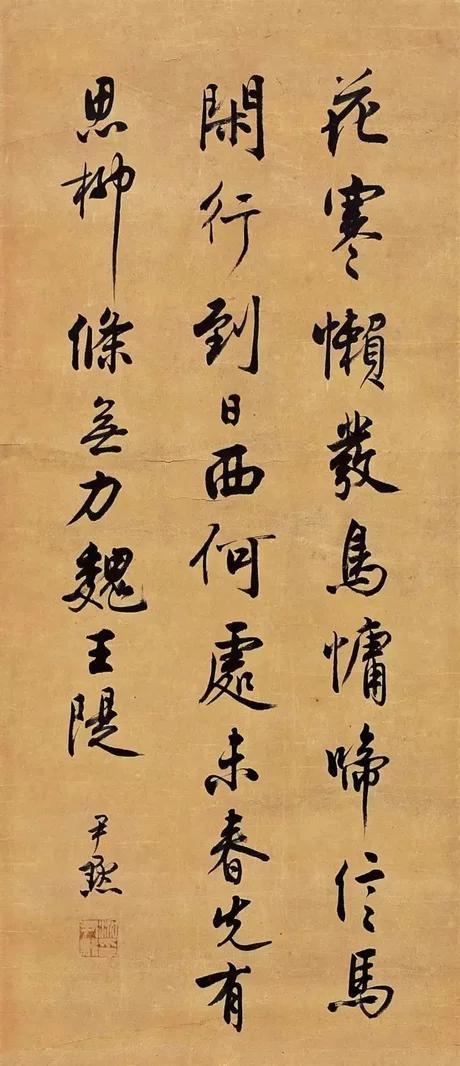 花寒懶發鳥慵啼信馬
閑行到日西何處未春先有
思柳條無力魏王堤
尹默